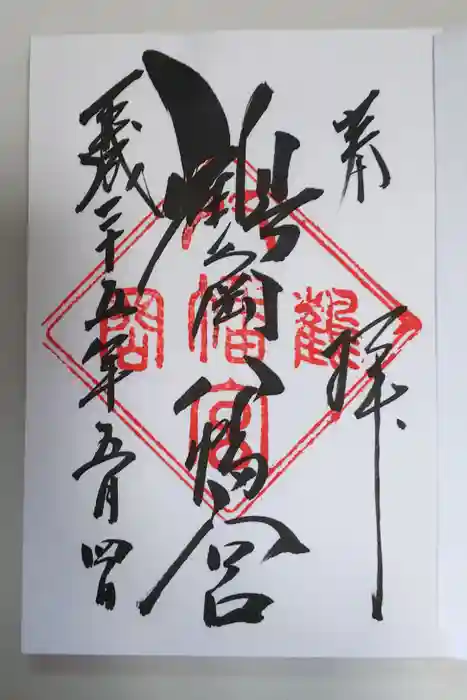 奉拝
鶴岡八幡宮
平成二十五年五月四日
鶴岡八幡宮